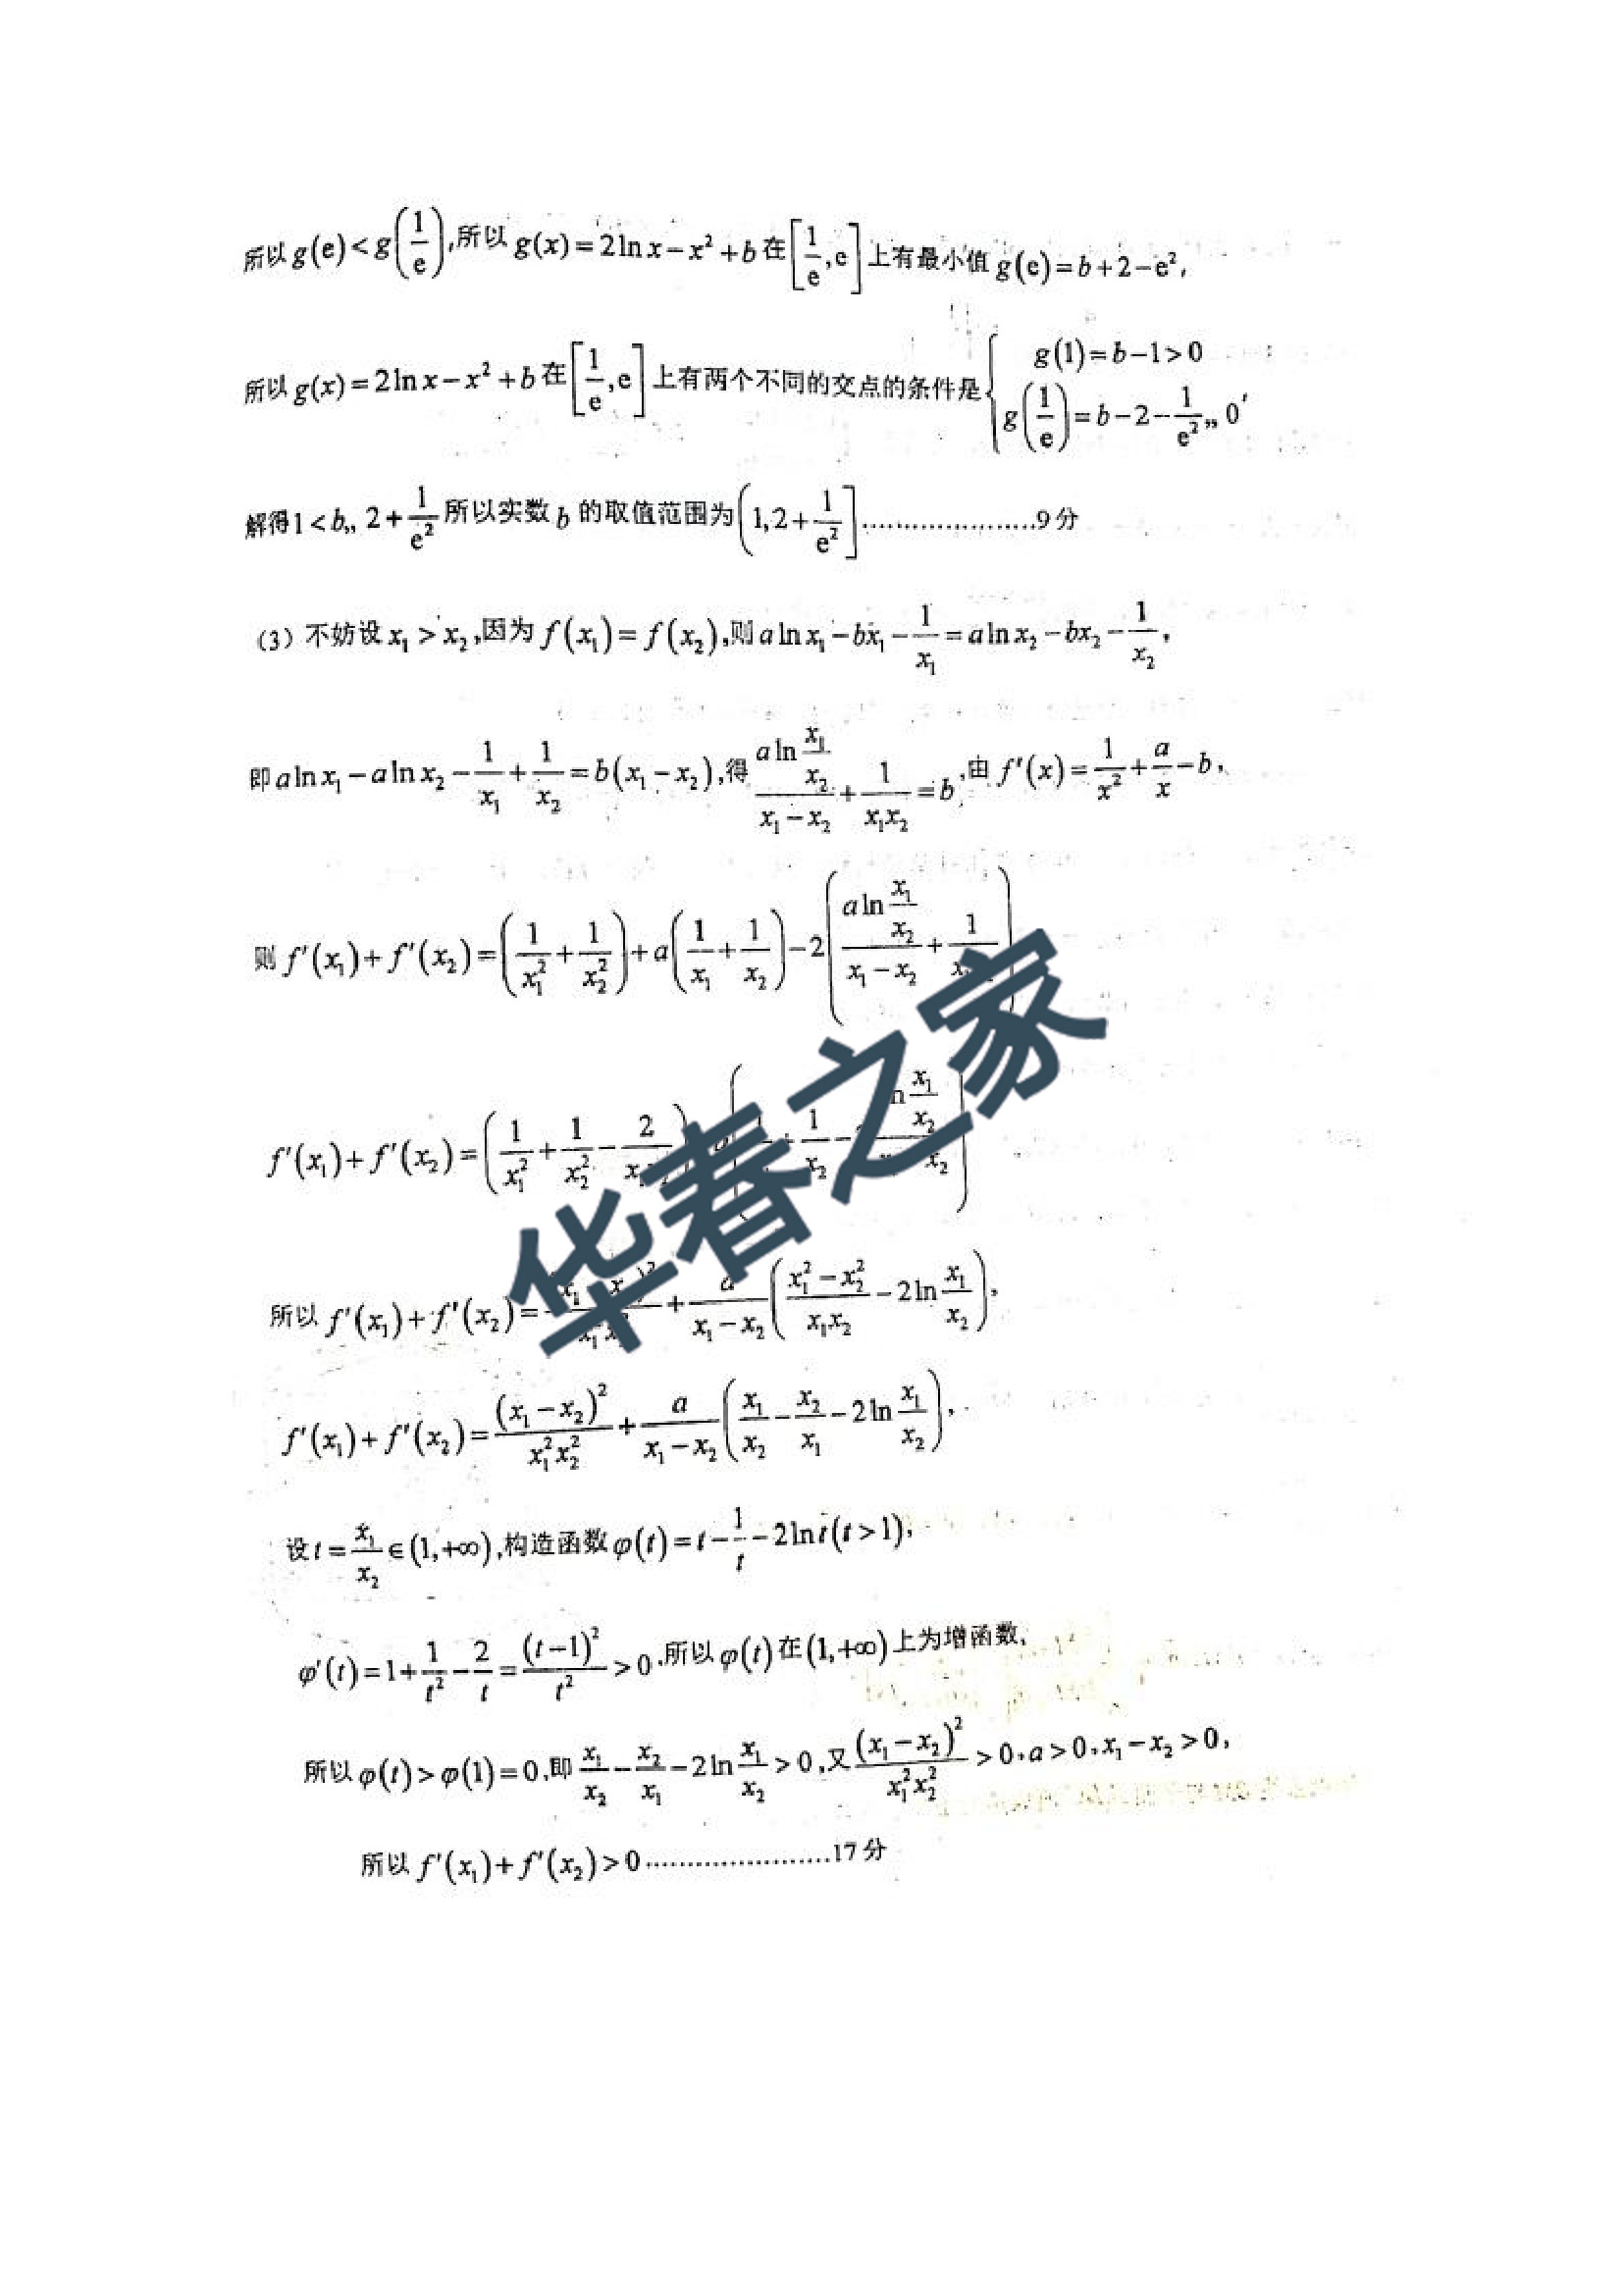 所以 g(e)<g(1/e),所以 g(x)=2ln x-x²+b 在[1/e,e]上有最小值 g(e)=b+2-e²,
所以 g(x)=2ln x-x²+b 在[1/e,e]上有两个不同的交点的条件是{g(1)=b-1>0 g(1/e)=b-2-1/e²„ 0,
解得1<b„ 2+1/e² 所以实数 b 的取值范围为(1,2+1/e²].....................9分
(3) 不妨设 x₁ > x₂,因为 f(x₁)=f(x₂),则 a ln x₁-bx₁-1/x₁=a ln x₂-bx₂-1/x₂,
即 a ln x₁-a ln x₂-1/x₁+1/x₂=b(x₁-x₂),得 (a ln x₁/x₂)/(x₁-x₂)+1/(x₁x₂)=b,由 f'(x)=1/x²+a/x-b,
则 f'(x₁)+f'(x₂)=(1/x₁²+1/x₂²)+a(1/x₁+1/x₂)-2((a ln x₁/x₂)/(x₁-x₂)+1/
f'(x₁)+f'(x₂)=(1/x₁²+1/x₂²-2/ +1/x₂- x₁/x₂ x₂)
所以 f'(x₁)+f'(x₂)= +a/(x₁-x₂)((x₁²-x₂²)/(x₁x₂)-2ln x₁/x₂),
f'(x₁)+f'(x₂)=(x₁-x₂)²/(x₁²x₂²)+a/(x₁-x₂)(x₁/x₂-x₂/x₁-2ln x₁/x₂),
设 t=x₁/x₂∈(1,+∞),构造函数 φ(t)=t-1/t-2ln t(t>1),
φ'(t)=1+1/t²-2/t=(t-1)²/t²>0,所以 φ(t) 在(1,+∞)上为增函数,
所以 φ(t)>φ(1)=0,即 x₁/x₂-x₂/x₁-2ln x₁/x₂>0,又 (x₁-x₂)²/(x₁²x₂²)>0,a>0,x₁-x₂>0,
所以 f'(x₁)+f'(x₂)>0......................17分
华春之家